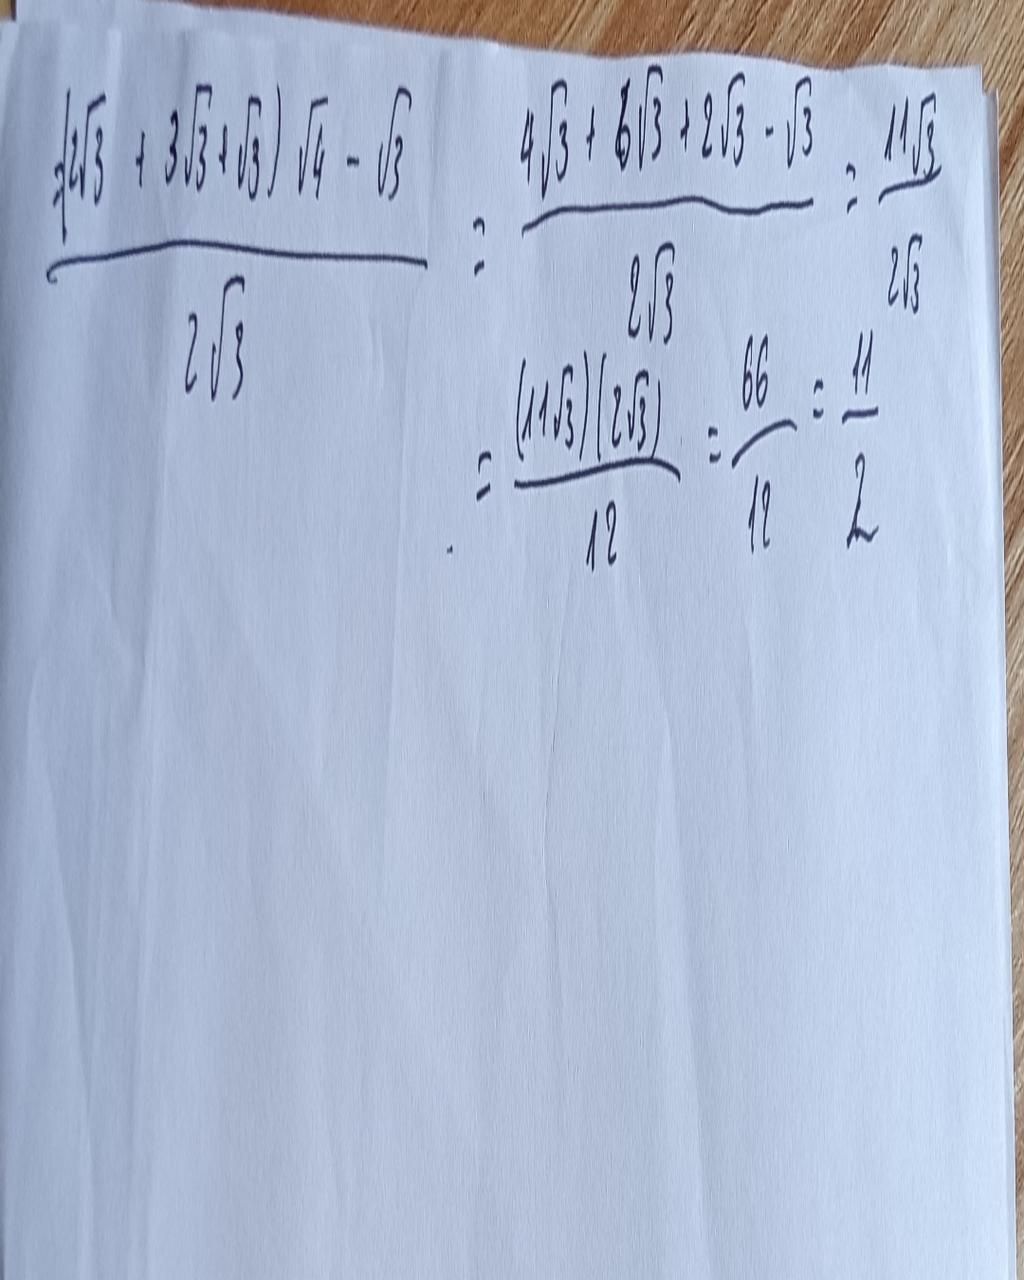 = (2√3 + 3√3 + √3) √4 - √3 / 2√3 = 4√3 + 6√3 + 2√3 - √3 / 2√3 = 11√3 / 2√3
= (11√3)(2√3) / 12 = 66 / 12 = 11 / 2